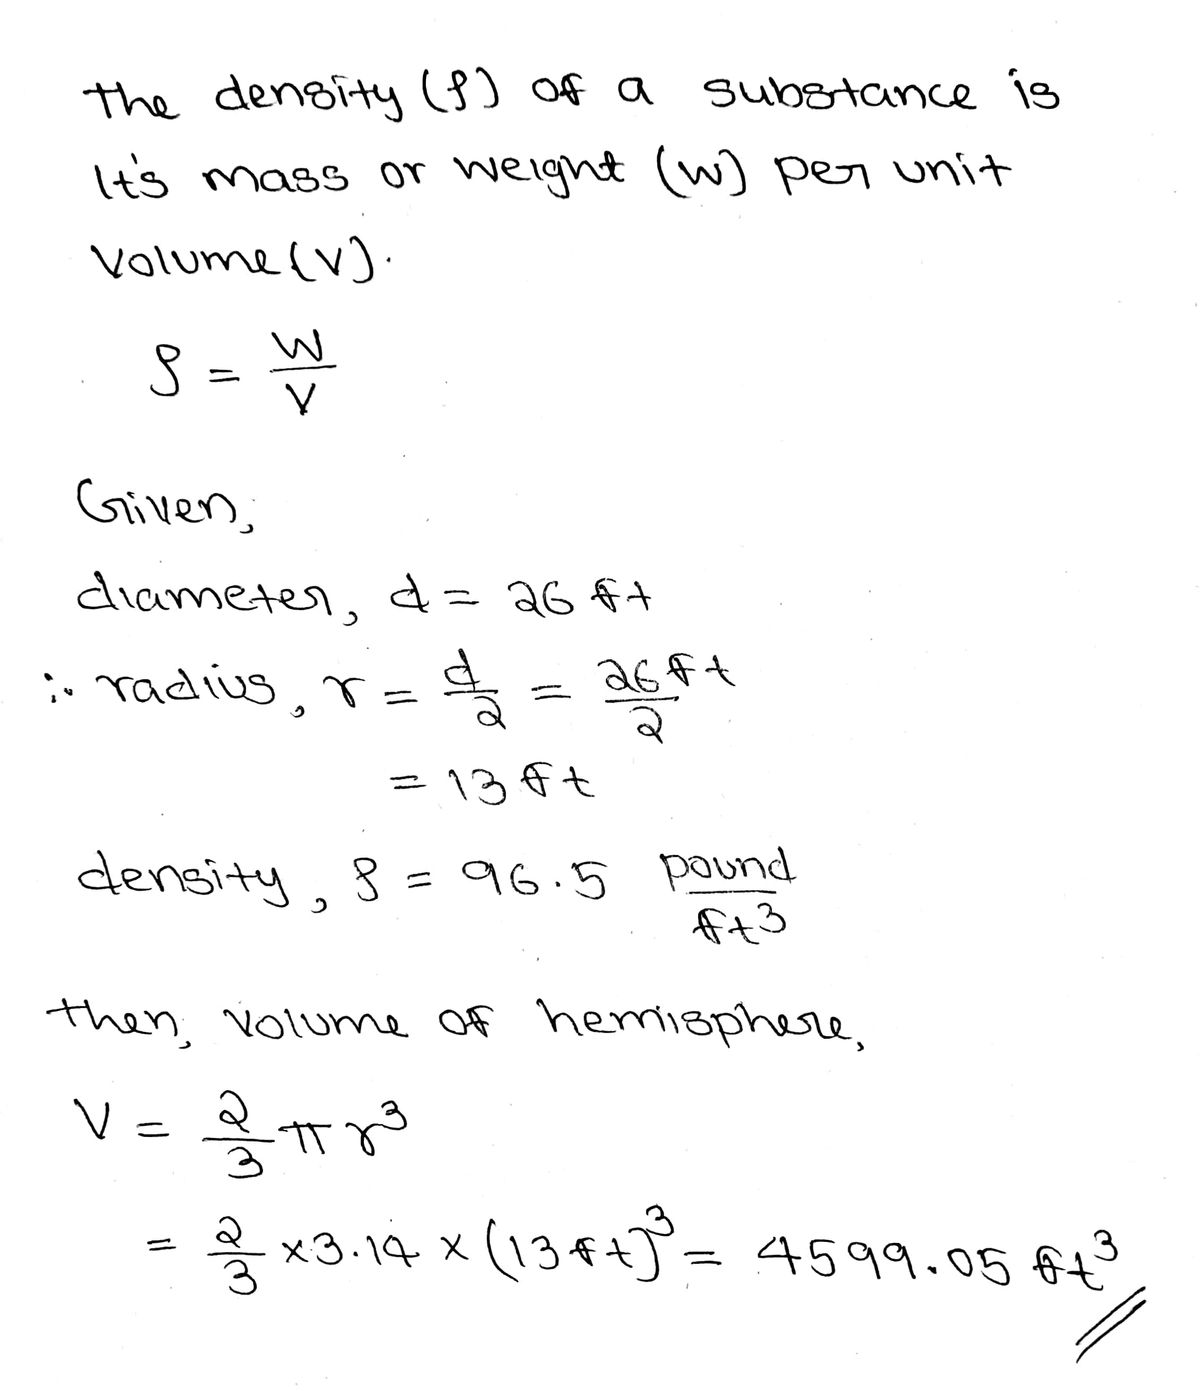 the density (ρ) of a substance is
It's mass or weight (W) per unit
Volume (V).
ρ = W/V
Given,
diameter, d = 26 ft
∴ radius, r = d/2 = 26 ft/2
= 13 ft
density, ρ = 96.5 pound/ft³
then, volume of hemisphere,
V = 2/3 π r³
= 2/3 × 3.14 × (13 ft)³ = 4599.05 ft³